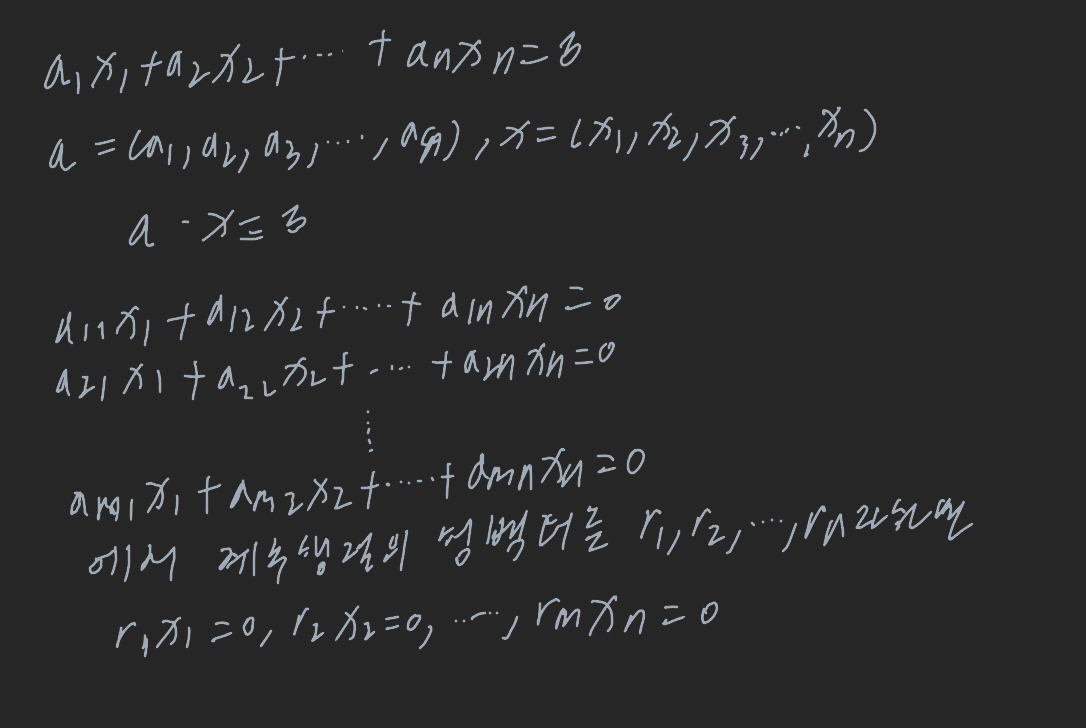 a₁x₁+a₂x₂+⋯+aₙxₙ=3
a=(a₁,a₂,a₃,⋯,aₙ), x=(x₁,x₂,x₃,⋯,xₙ)
a·x=3
a₁₁x₁+a₁₂x₂+⋯+a₁ₙxₙ=0
a₂₁x₁+a₂₂x₂+⋯+a₂ₙxₙ=0
⋮
aₘ₁x₁+aₘ₂x₂+⋯+aₘₙxₙ=0
에서 계수행렬의 행벡터를 r₁,r₂,⋯,rₙ라하면
r₁x₁=0, r₂x₂=0, ⋯, rₘxₙ=0